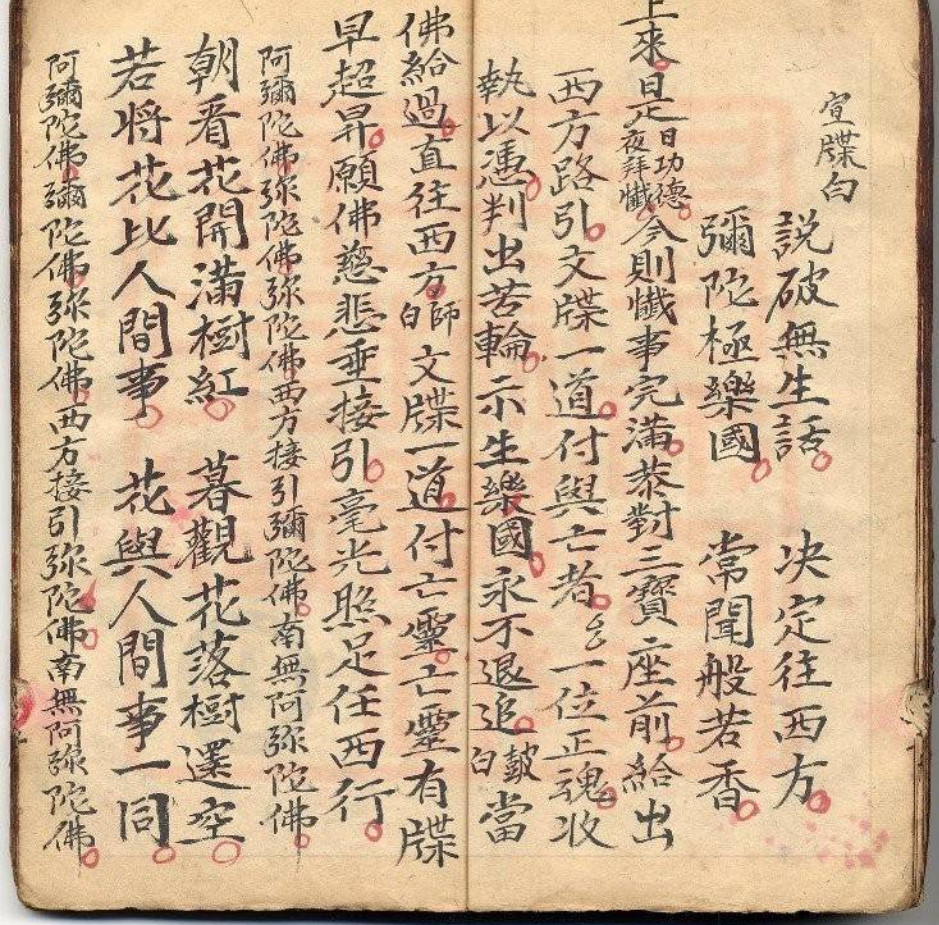 宣牒白
説破無生話 決定往西方
彌陀極樂國 常聞般若香
上來日是日功德夜拜懺今則懺事完滿恭對三寶座前給出
西方路引文牒一道付與亡者 一位正魂收
執以憑判出苦輪示生樂國永不退追鼓白當
佛給過直往西方師白文牒一道付亡靈亡靈有牒
早超昇願佛慈悲垂接引毫光照足任西行
阿彌陀佛弥陀佛弥陀佛西方接引彌陀佛南無阿弥陀佛
朝看花開滿樹紅 暮觀花落樹還空
若将花比人間事 花與人間事一同
阿彌陀佛彌陀佛弥陀佛西方接引弥陀佛南無阿弥陀佛